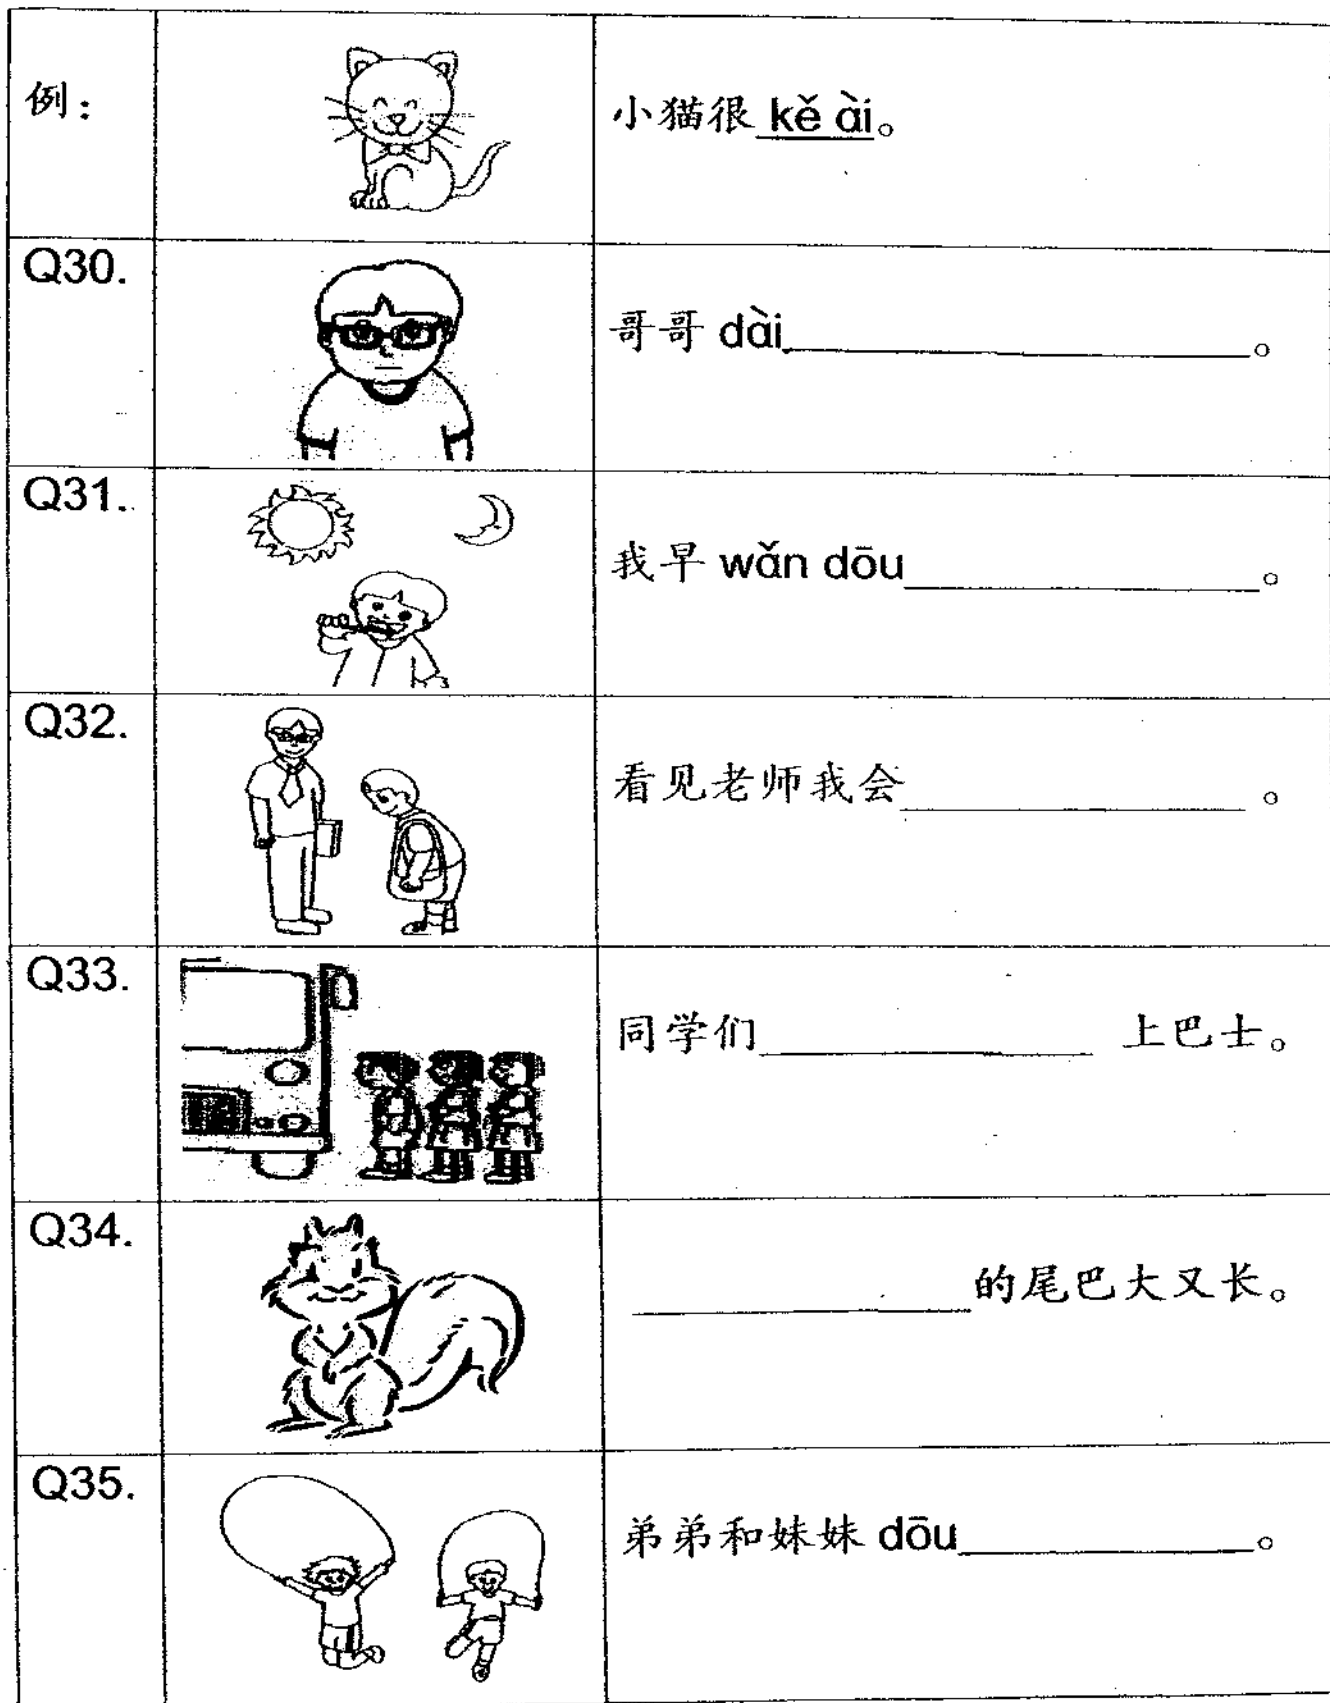 例： 小猫很 kě ài。
Q30. 哥哥 dài______________。
Q31. 我早 wǎn dōu______________。
Q32. 看见老师我会______________。
Q33. 同学们______________ 上巴士。
Q34. ______________的尾巴大又长。
Q35. 弟弟和妹妹 dōu______________。